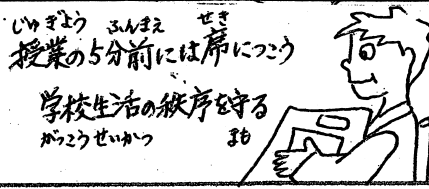 じゅぎょう ふんまえ せき
授業の5分前には席につこう
学校生活の秩序を守る
がっこうせいかつ まも